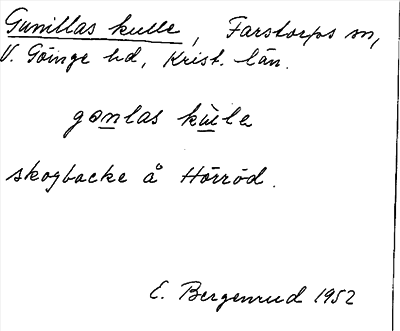 Gunillas kulle, Farstorps sn,
V. Göinge hd, Krist. län.
gonlas kùlle
skogbacke å Hörröd.
E. Bergenrud 1952